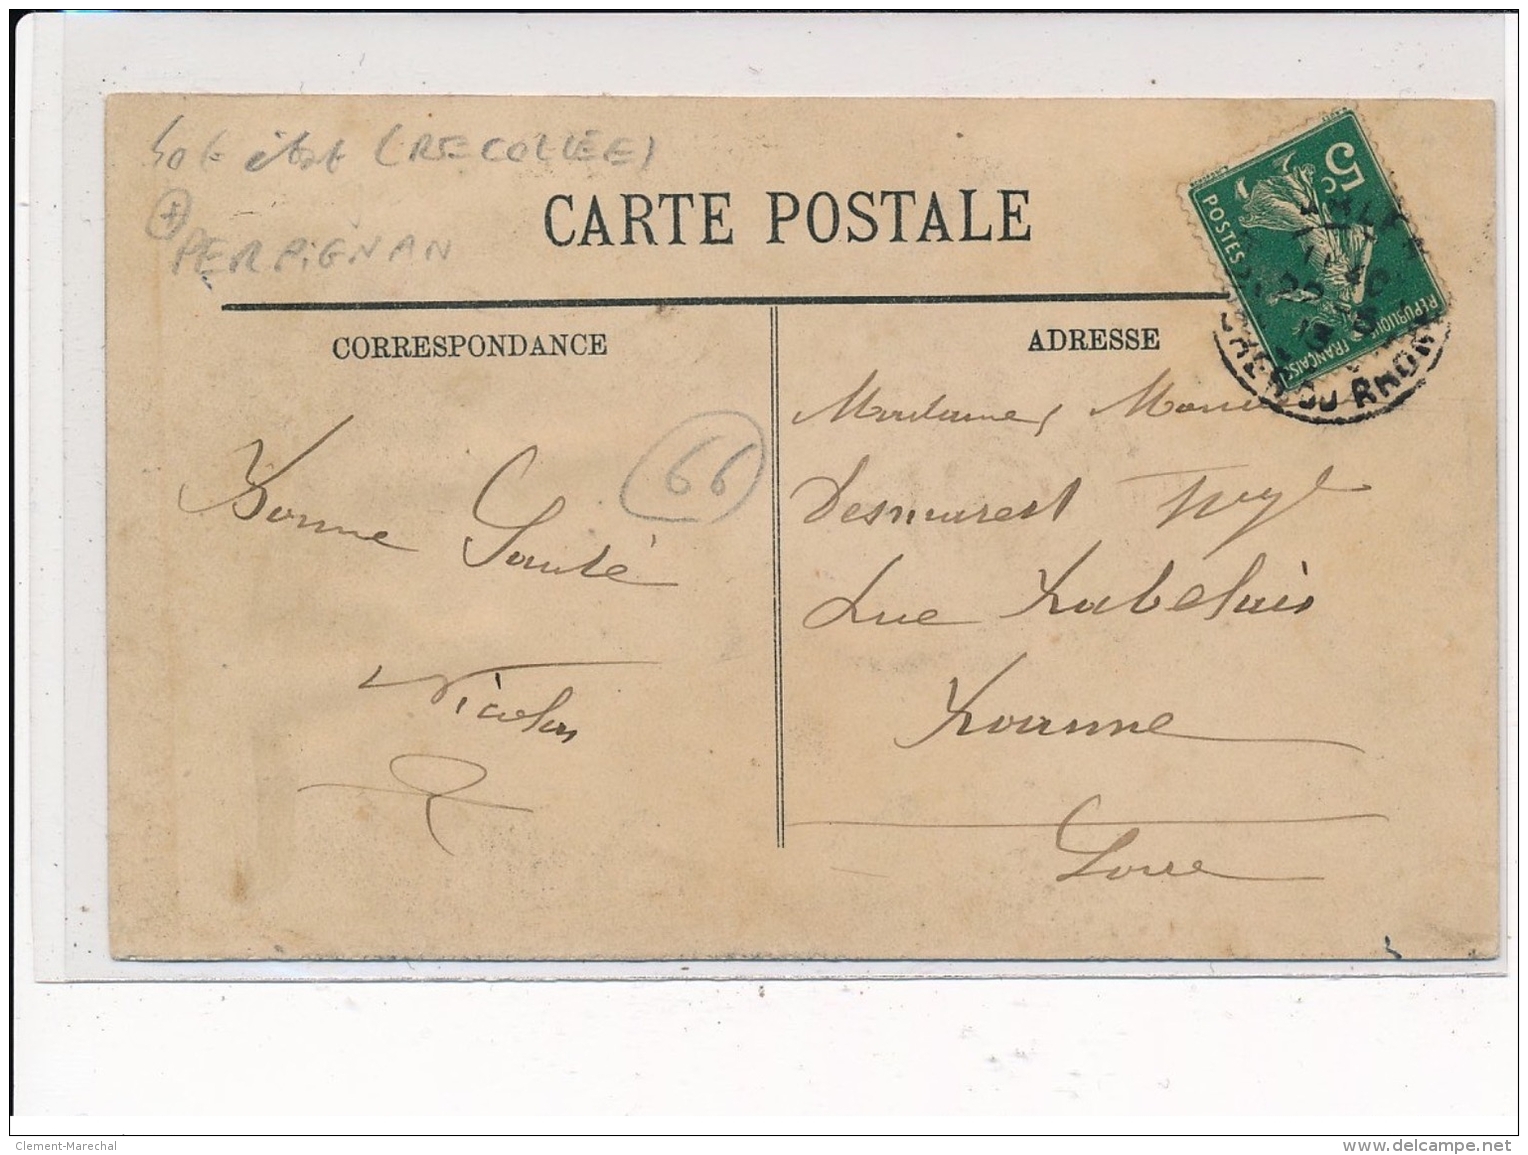 50 € état (RECOLLÉE)
+
PERPIGNAN
CARTE POSTALE
5
c
POSTES
REPUBLIQUE FRANÇAISE
DU RHONE
CORRESPONDANCE
ADRESSE
66
Bonne Santé
Nicolas
Madame,
Desmarest
Rue Rabelais
Roanne
Loire
Clement-Marechal
www.delcampe.net